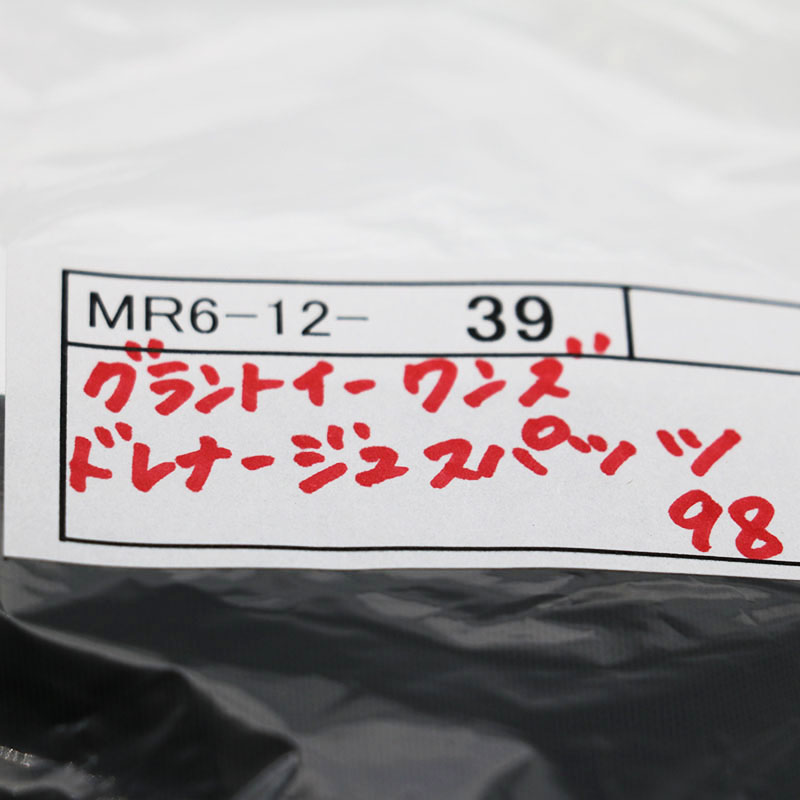 MR6-12- 39
グラントイーワンズ
ドレナージュスパッツ
98